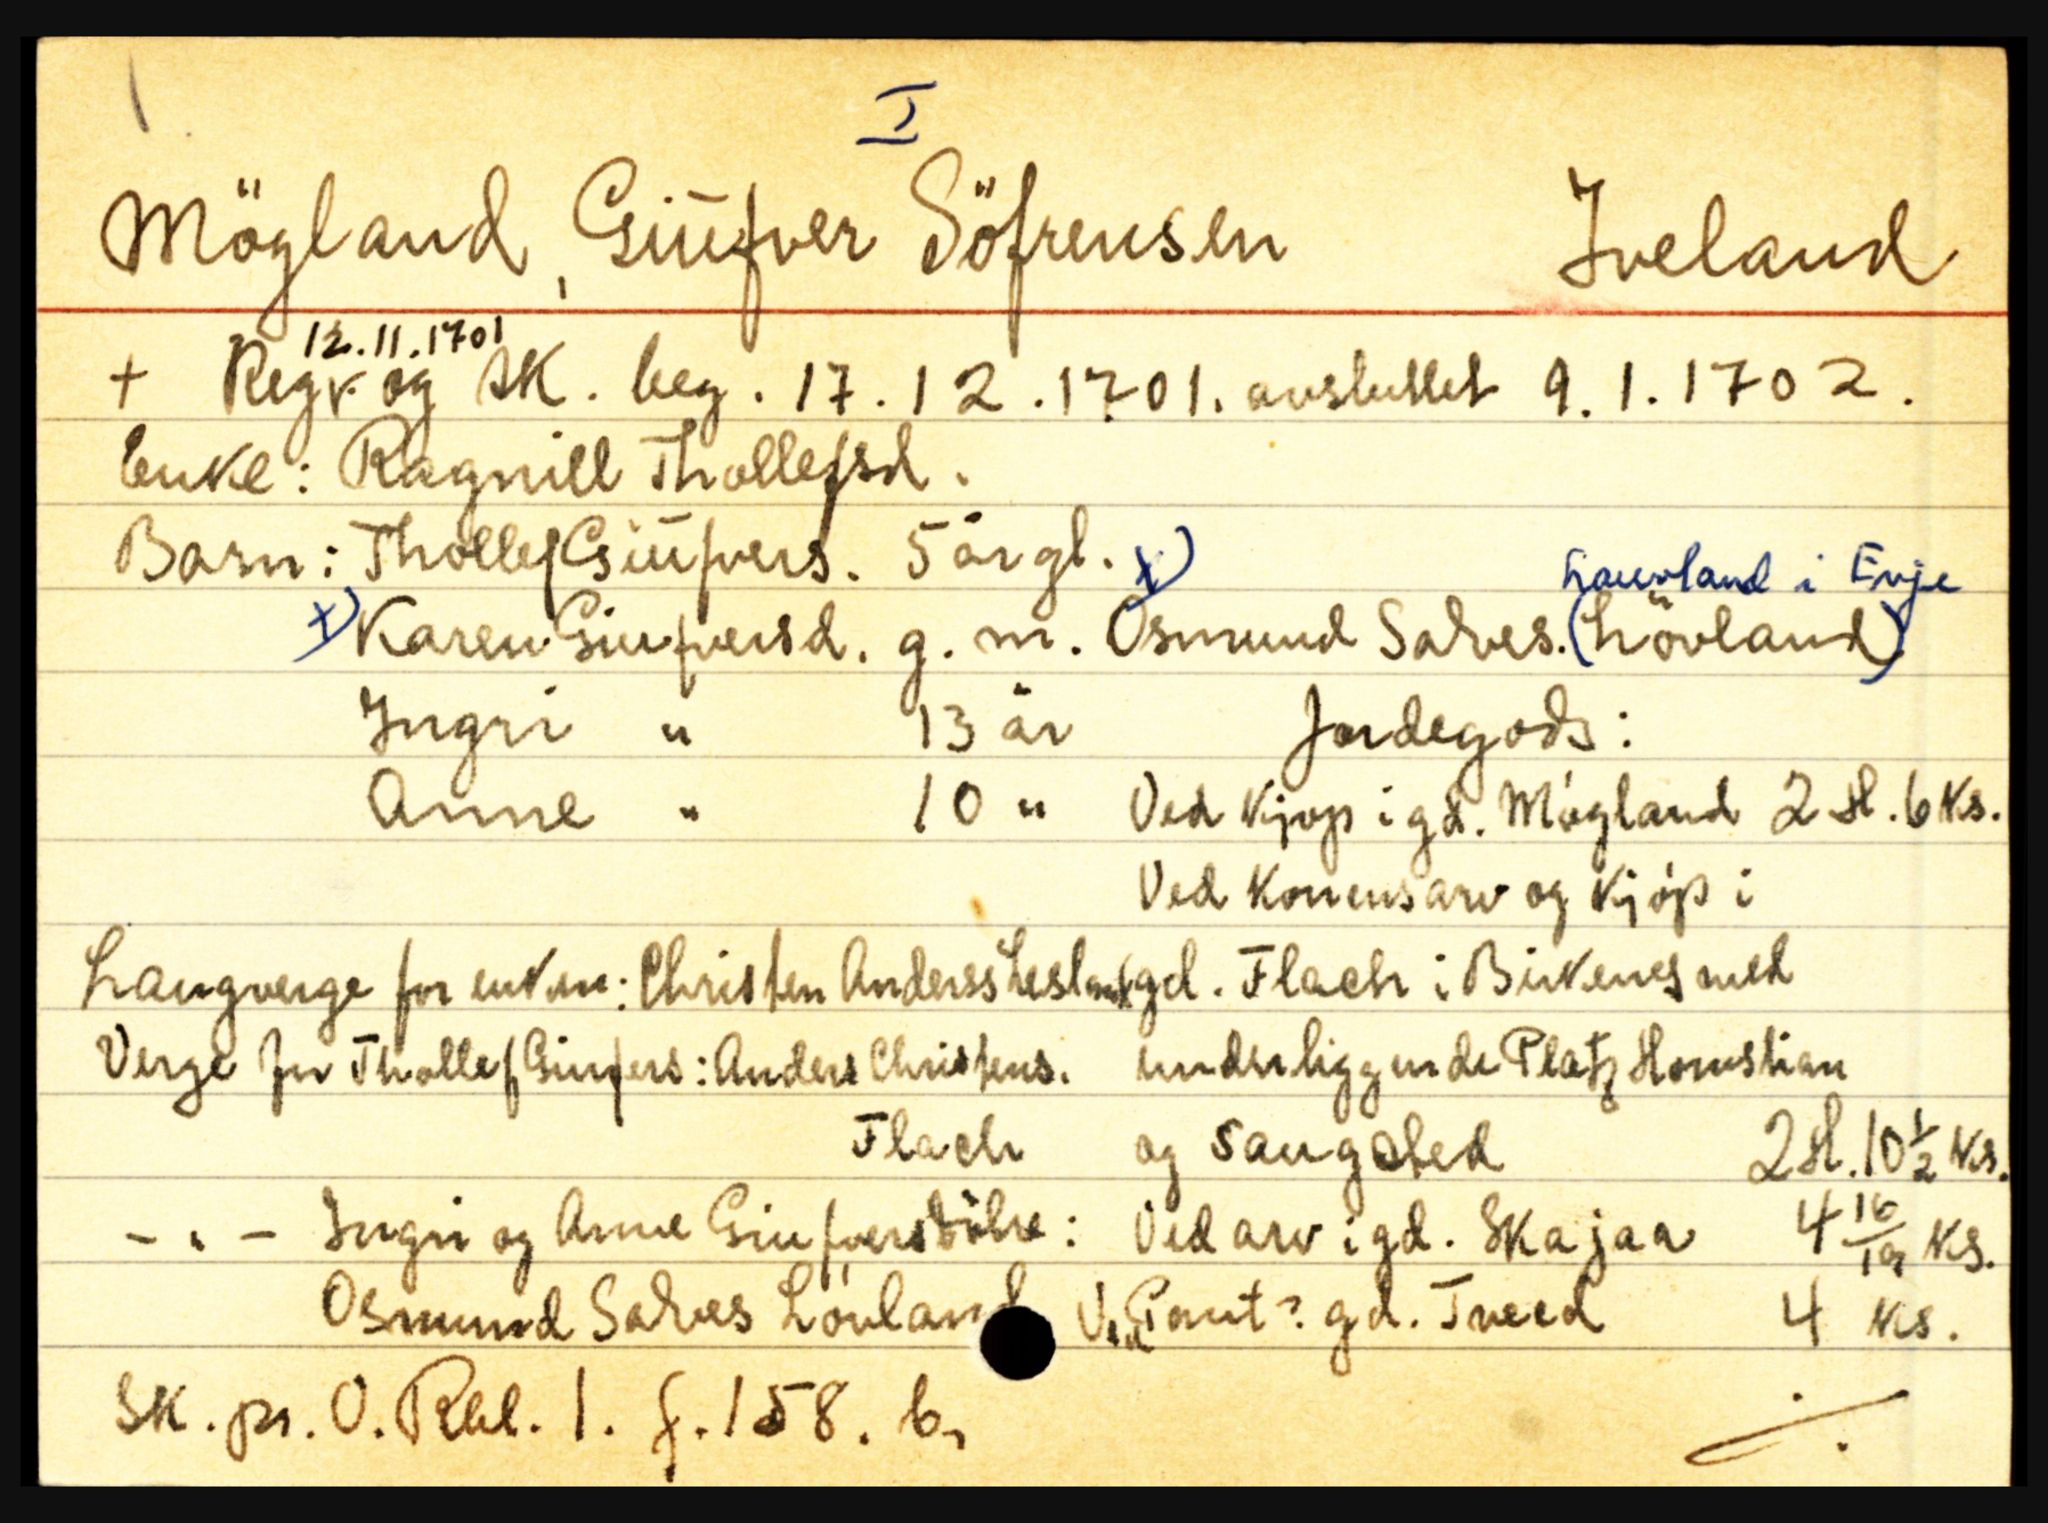 I
Mögland, Giüfver Söfrensen Iveland
12.11.1701
+ Regr. og SK. beg. 17.12.1701. avsluttet 9.1.1702.
Enke: Ragnill Thollefsd.
Barn: Thollef Giüfvers. 5 år gl. x)
Lauvland i Evje
x) Karen Giufversd. g. m. Osmund Salves. (Lövland)
Ingri " 13 år Jordegods:
Anne " 10 " Ved kjøp i gd. Mögland 2 H. 6 Ks.
Ved Konens arv og kjøp i
Laugverge for enken: Christen Anderss Lesland gd. Flach i Birkenes med
Verge for Tholef Giufvers: Anders Christens. underliggende Platz
Flach og Saugsted 2 H. 10 1/2 Ks.
- " - Ingri og Anne Giufversdötre: Ved arv i gd. Skajaa 4 16/19 Ks.
Osmund Salves Lövland Ved Pant? gd. Tveed 4 Ks.
SK. pr. O. Rbl. 1. f. 158. b.